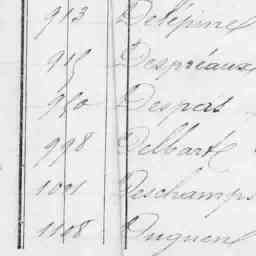 913 Delépine
915 Despréaux
990 Despert
998 Delbarté
1001 Deschamps
1108 Duquen